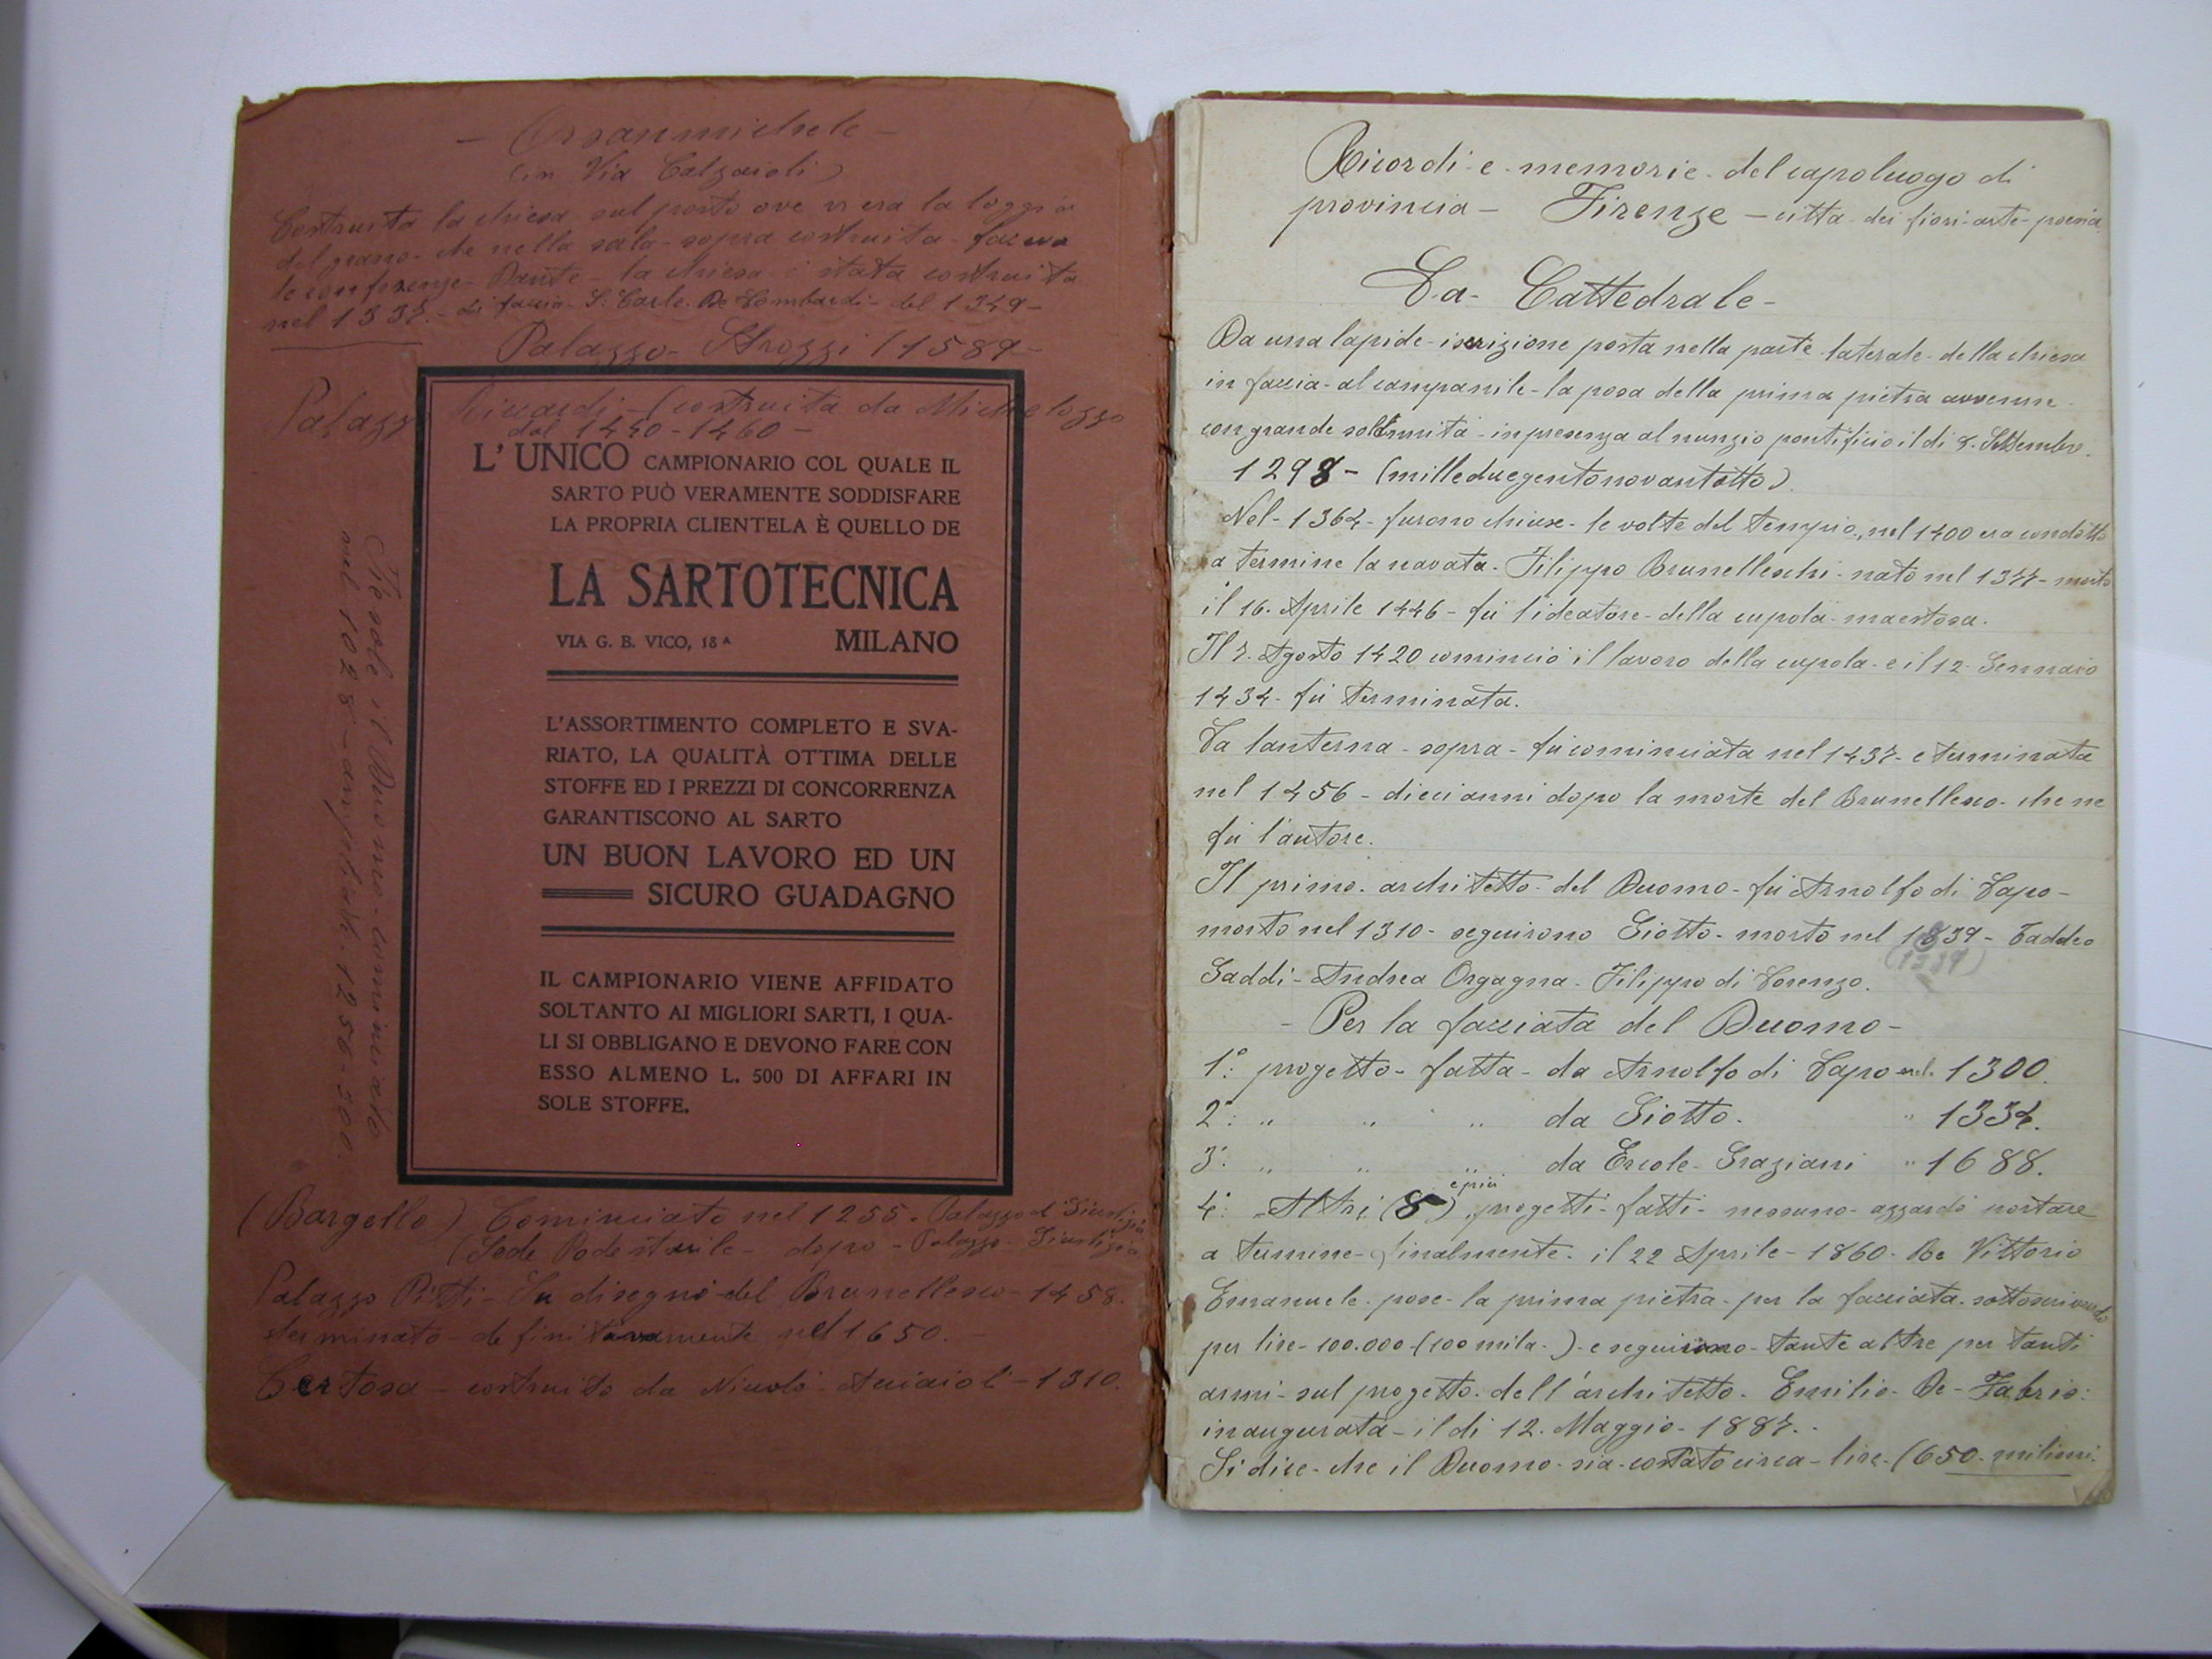 - Orsanmichele -
(in Via Calzaioli)
Costruita la chiesa sul posto ove vi era la loggia
del grano - che nella sala - sopra costruita - faceva
le conferenze - Dante - la chiesa è stata costruita
nel 1337 - di faccia - S. Carlo De Lombardi - del 1349 -
Palazzo - Strozzi (1589 -
Palazz Riccardi - (costruita da Michelozzo
dal 1440 - 1460 -
L' UNICO CAMPIONARIO COL QUALE IL
SARTO PUÒ VERAMENTE SODDISFARE
LA PROPRIA CLIENTELA È QUELLO DE
LA SARTOTECNICA
VIA G. B. VICO, 18 A MILANO
L'ASSORTIMENTO COMPLETO E SVA-
RIATO, LA QUALITÀ OTTIMA DELLE
STOFFE ED I PREZZI DI CONCORRENZA
GARANTISCONO AL SARTO
UN BUON LAVORO ED UN
SICURO GUADAGNO
IL CAMPIONARIO VIENE AFFIDATO
SOLTANTO AI MIGLIORI SARTI, I QUA-
LI SI OBBLIGANO E DEVONO FARE CON
ESSO ALMENO L. 500 DI AFFARI IN
SOLE STOFFE.
Fiesole il Duomo - cominciato
nel 1028 - 1256 - 300.
(Bargello) Cominciato nel 1255 - Palazzo d Giustizia
(Sede Podestarile - dopo - Palazzo - Giustizia
Palazzo Pitti - Su disegno del Brunellesco - 1458.
terminato - definitivamente nel 1650. -
Certosa - costruito da Nicolò - Aciaioli - 1310.
Ricordi - e - memorie - del capoluogo di
provincia - Firenze - citta - dei fiori - arte - poesia
La - Cattedrale -
Da una lapide - iscrizione posta nella parte laterale - della chiesa
in faccia - al campanile - la posa della prima pietra avvenne
con grande solennità - in presenza al nunzio pontificio il di 8. Settembre.
1298 - (milleduegentonovantotto).
Nel - 1364 - furono chiuse - le volte del tempio, nel 1400 era condotto
a termine la navata. Filippo Brunelleschi - nato nel 1377 - morto
il 16. Aprile 1446 - fù l'ideatore - della cupola - maestosa.
Il 7. Agosto 1420 cominciò il lavoro della cupola - e il 12. Gennaio
1434 - fù terminata.
La lanterna - sopra - fù cominciata nel 1437 - e terminata
nel 1456 - dieci anni dopo la morte del Brunellesco - che ne
fù l'autore.
Il primo - architetto - del Duomo - fù Arnolfo di Lapo -
morto nel 1310 - seguirono Giotto - morto nel 1339 - Taddeo
(1339)
Gaddi - Andrea Orgagna - Filippo di Lorenzo.
- Per la facciata del Duomo -
1°: progetto - fatta - da Arnolfo di Lapo nel 1300.
2°: " " " da Giotto. " 1334.
3°: " " " da Ercole - Graziani " 1688.
e più
4°: Altri (8) progetti - fatti - nessuno - azzardò portare
a termine - finalmente - il 22 Aprile - 1860 - Re Vittorio
Emanuele - pose - la prima pietra - per la facciata - sottoscrivendo
per lire - 100.000 - (100 mila -) - e seguirono - tante altre per tanti
anni - sul progetto - dell'architetto - Emilio - De - Fabris:
inaugurata - il di 12. Maggio - 1887. -
Si dice - che il Duomo - sia - costato circa - lire - (650 - milioni.